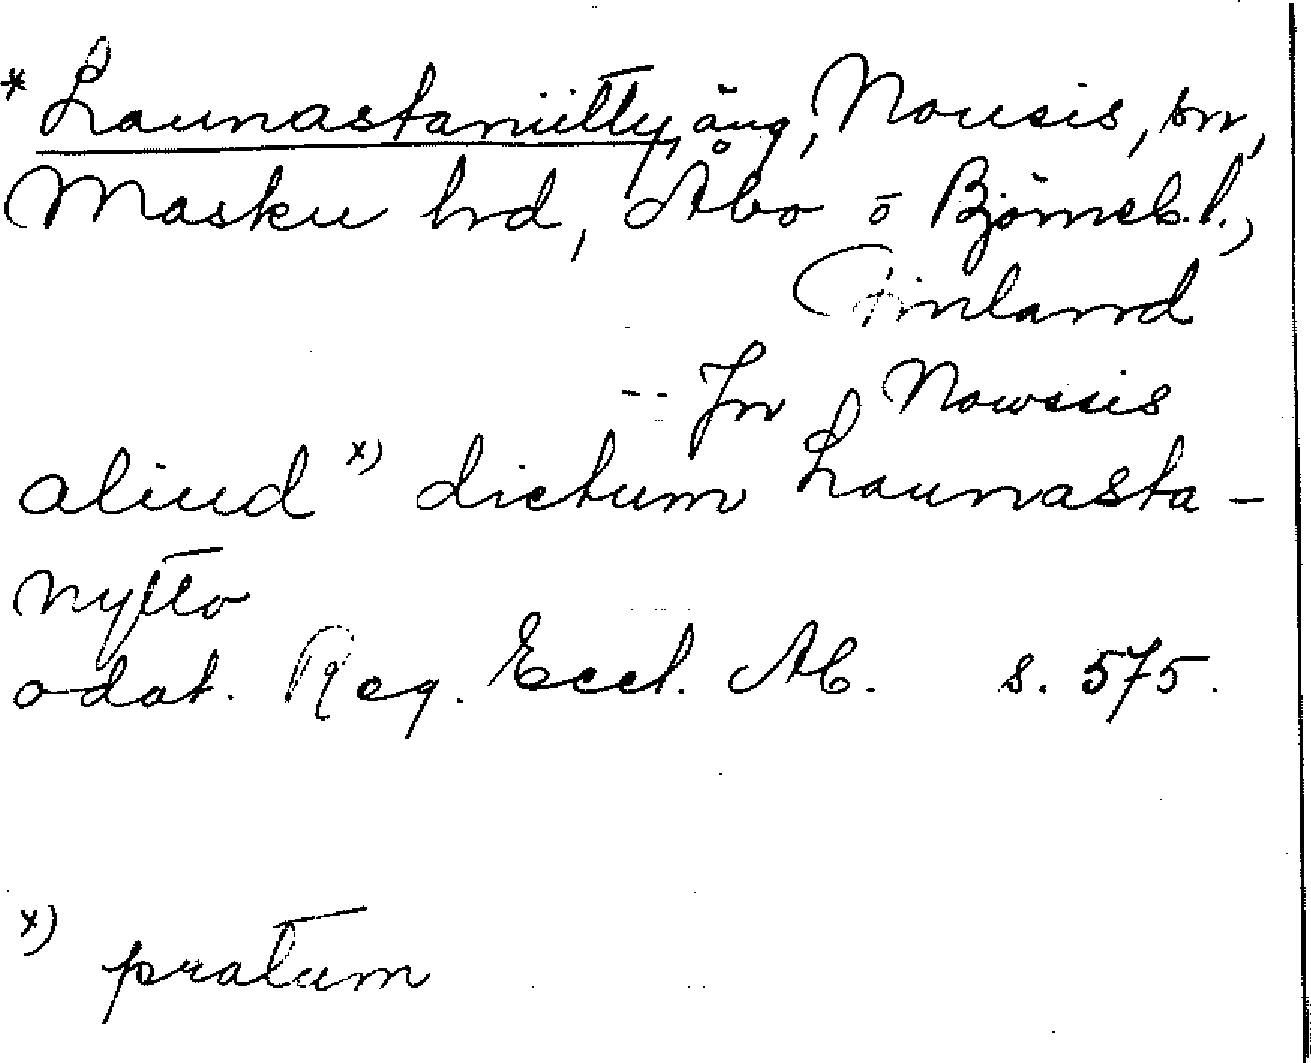 * Launastaniitty, äng, Nousis, sn,
Masku hrd, Åbo o Björneb.l.,
Finland
-- Jn Nowsis
aliud x) dictum Launasta-
nytto
odat. Reg. Eccl. Ab. s. 575.
x) pratum